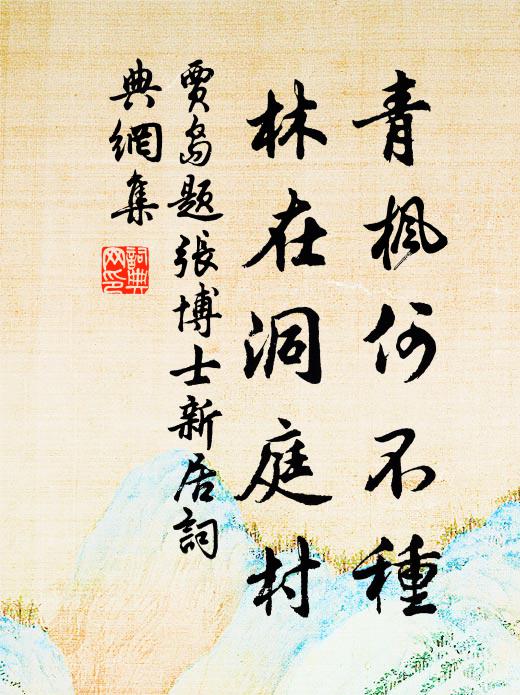 青楓何不種
林在洞庭村
賈島題張博士新居詞
典網集
詞典
網印